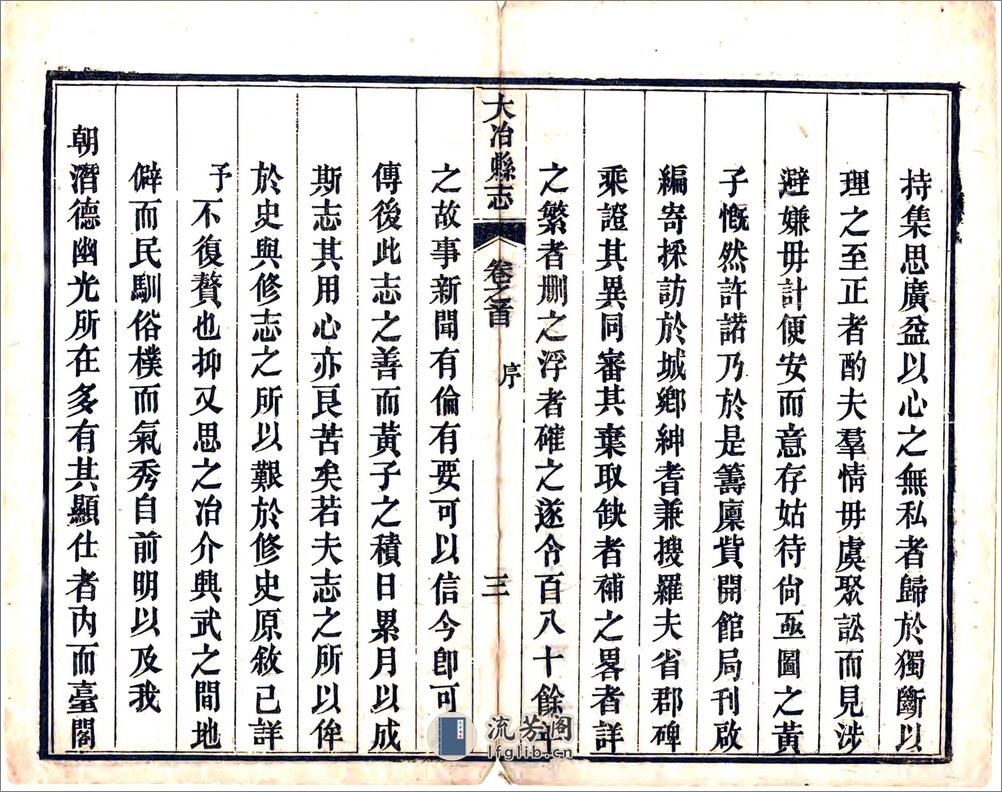 持集思廣益以心之無私者歸於獨斷以
理之至正者酌夫羣情毋虞聚訟而見涉
避嫌毋計便安而意存姑待尙亟圖之黃
子慨然許諾乃於是籌廩貲開館局刊啟
編寄採訪於城鄉紳耆兼搜羅夫省郡碑
乘證其異同審其棄取缺者補之畧者詳
之繁者刪之浮者確之遂令百八十餘
大冶縣志 卷之首 序 三
之故事新聞有倫有要可以信今卽可
傳後此志之善而黃子之積日累月以成
斯志其用心亦良苦矣若夫志之所以侔
於史與修志之所以艱於修史原敘已詳
予不復贅也抑又思之冶介興武之間地
僻而民馴俗樸而氣秀自前明以及我
朝潛德幽光所在多有其顯仕者內而臺閣
流芳閣
lfglib.cn